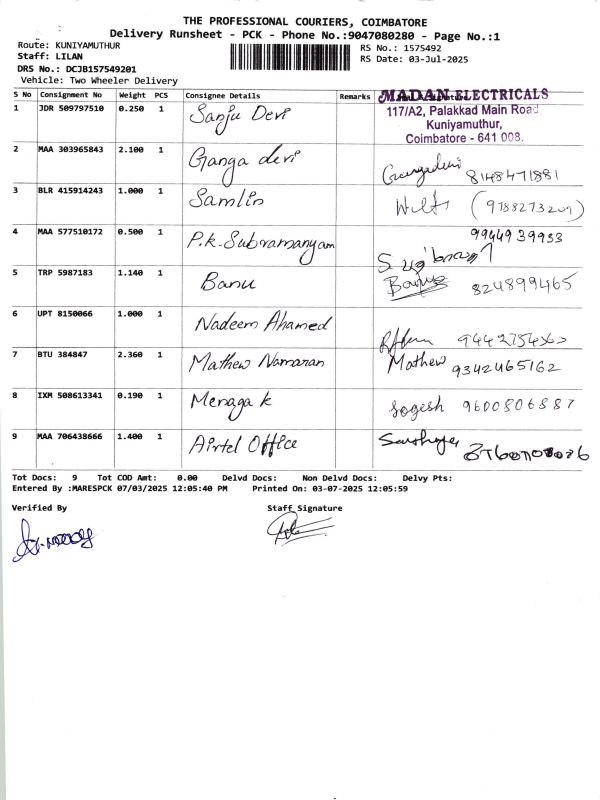 THE PROFESSIONAL COURIERS, COIMBATORE
Delivery Runsheet - PCK - Phone No.:9047080280 - Page No.:1
Route: KUNIYAMUTHUR
Staff: LILAN
DRS No.: DCJB157549201
Vehicle: Two Wheeler Delivery
RS No.: 1575492
RS Date: 03-Jul-2025
S No Consignment No Weight PCS Consignee Details Remarks
MADAN ELECTRICALS
117/A2, Palakkad Main Road
Kuniyamuthur,
Coimbatore - 641 008.
1 JDR 509797510 0.250 1 Sanju Devi
2 MAA 303965843 2.100 1 Ganga devi Gangadevi 8148471881
3 BLR 415914243 1.000 1 Samlin (9788273209)
4 MAA 577510172 0.500 1 P.k.Subramanyam 9944939933
5 TRP 5987183 1.140 1 Banu Banu 824899465
6 UPT 8150066 1.000 1 Nadeem Ahamed
7 BTU 384847 2.360 1 Mathew Namaran Mathew 9342465162
8 IXM 508613341 0.190 1 Menaga k Yogesh 9600806887
9 MAA 706438666 1.400 1 Airtel Office
Tot Docs: 9 Tot COD Amt: 0.00 Delvd Docs: Non Delvd Docs: Delvy Pts:
Entered By :MARESPCK 07/03/2025 12:05:40 PM Printed On: 03-07-2025 12:05:59
Verified By Staff Signature